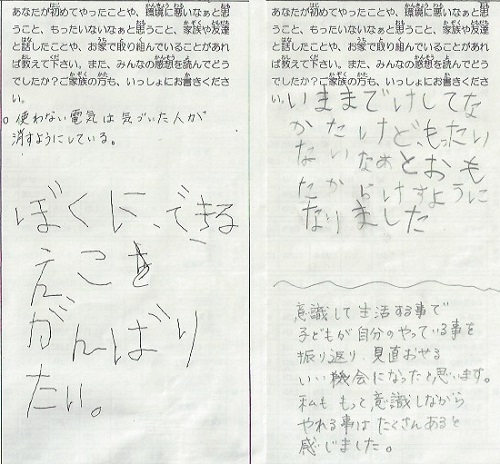 あなたが初めてやったことや、環境に悪いなぁと思
うこと、もったいないなぁと思うこと、家族や友達
と話したことや、お家で取り組んでいることがあれ
ば教えて下さい。また、みんなの感想を読んでどう
でしたか？ご家族の方も、いっしょにお書きくださ
い。
○使わない電気は気づいた人が
消すようにしている。
ぼくに、できる
えこを
がんばり
たい。
あなたが初めてやったことや、環境に悪いなぁと思
うこと、もったいないなぁと思うこと、家族や友達
と話したことや、お家で取り組んでいることがあれ
ば教えて下さい。また、みんなの感想を読んでどう
でしたか？ご家族の方も、いっしょにお書きくださ
い。
いままでけしてな
かたけど、もったい
ないなぁとおも
たからけすように
なりました
意識して生活する事で
子どもが自分のやっている事を
振り返り、見直おせる
いい機会になったと思います。
私ももって意識しながら
やれる事はたくさんあると
感じました。